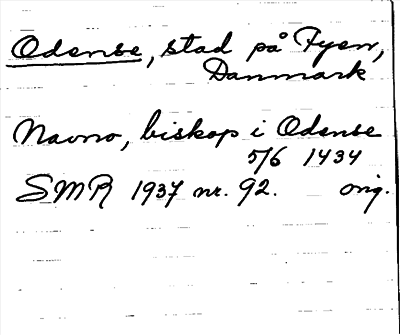 Odense, stad på Fyen,
Danmark
Navno, biskop i Odense
5/6 1434
SMR 1937 nr. 92. orig.